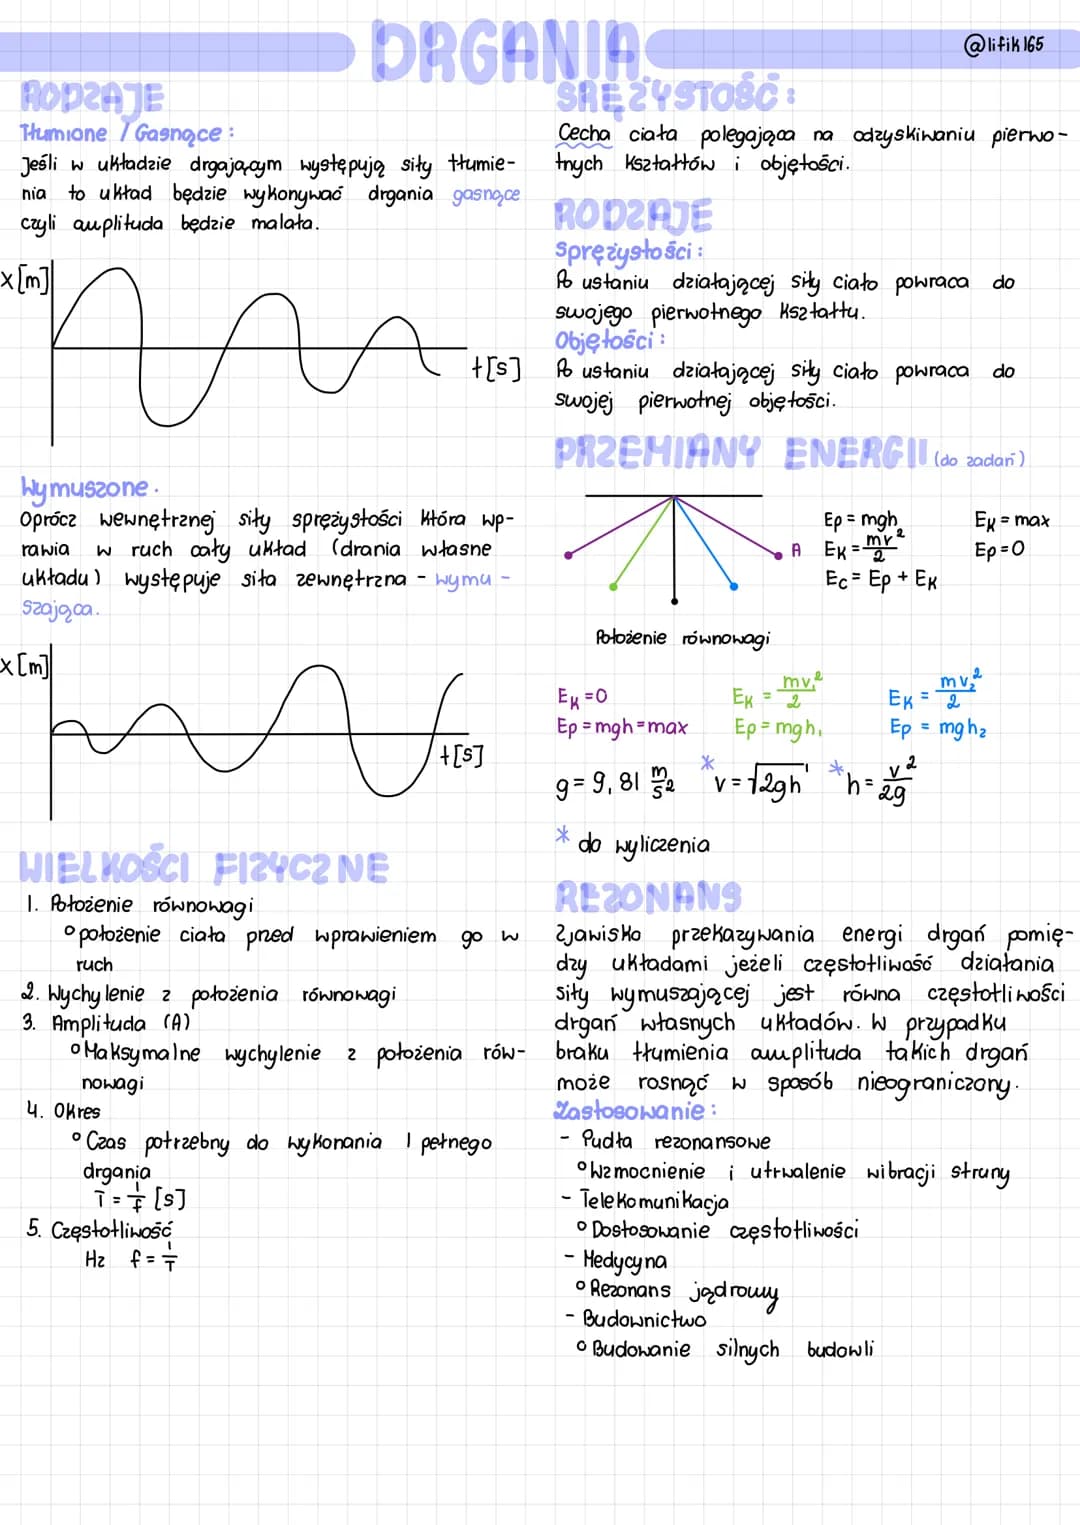 DRGANIA
@lifik165
RODZAJE
Tłumione / Gasnące :
Jeśli w układzie drgającym występują siły tłumie-
nia to układ będzie wykonywać drgania gasnące
czyli amplituda będzie malała.
x[m]
t[s]
Wymuszone.
Oprócz wewnętrznej siły sprężystości która wp-
rawia w ruch cały układ (drania własne
układu) występuje siła zewnętrzna - wymu-
szająca.
x[m]
t[s]
WIELKOŚCI FIZYCZNE
1. Położenie równowagi
° położenie ciała przed wprawieniem go w
ruch
2. Wychylenie z położenia równowagi
3. Amplituda (A)
° Maksymalne wychylenie z położenia rów-
nowagi
4. Okres
° Czas potrzebny do wykonania 1 pełnego
drgania
T = 1/f [s]
5. Częstotliwość
Hz f = 1/T
SRĘŻYSTOŚĆ :
Cecha ciała polegająca na odzyskiwaniu pierwo-
tnych kształtów i objętości.
RODZAJE
Sprężystości :
Po ustaniu działającej siły ciało powraca do
swojego pierwotnego kształtu.
Objętości :
Po ustaniu działającej siły ciało powraca do
swojej pierwotnej objętości.
PRZEMIANY ENERGII (do zadań)
A
Ep = mgh
Ek = mv²/2
Ec = Ep + Ek
Ek = max
Ep = 0
Położenie równowagi
Ek = 0
Ep = mgh = max
Ek = mv₁²/2
Ep = mgh₁
Ek = mv₂²/2
Ep = mgh₂
g = 9,81 m/s² * v = √2gh * h = v²/2g
* do wyliczenia
REZONANS
Zjawisko przekazywania energi drgań pomię-
dzy układami jeżeli częstotliwość działania
siły wymuszającej jest równa częstotliwości
drgań własnych układów. W przypadku
braku tłumienia amplituda takich drgań
może rosnąć w sposób nieograniczony.
Zastosowanie :
- Pudła rezonansowe
° Wzmocnienie i utrwalenie wibracji struny
- Telekomunikacja
° Dostosowanie częstotliwości
- Medycyna
° Rezonans jądrowy
- Budownictwo
° Budowanie silnych budowli